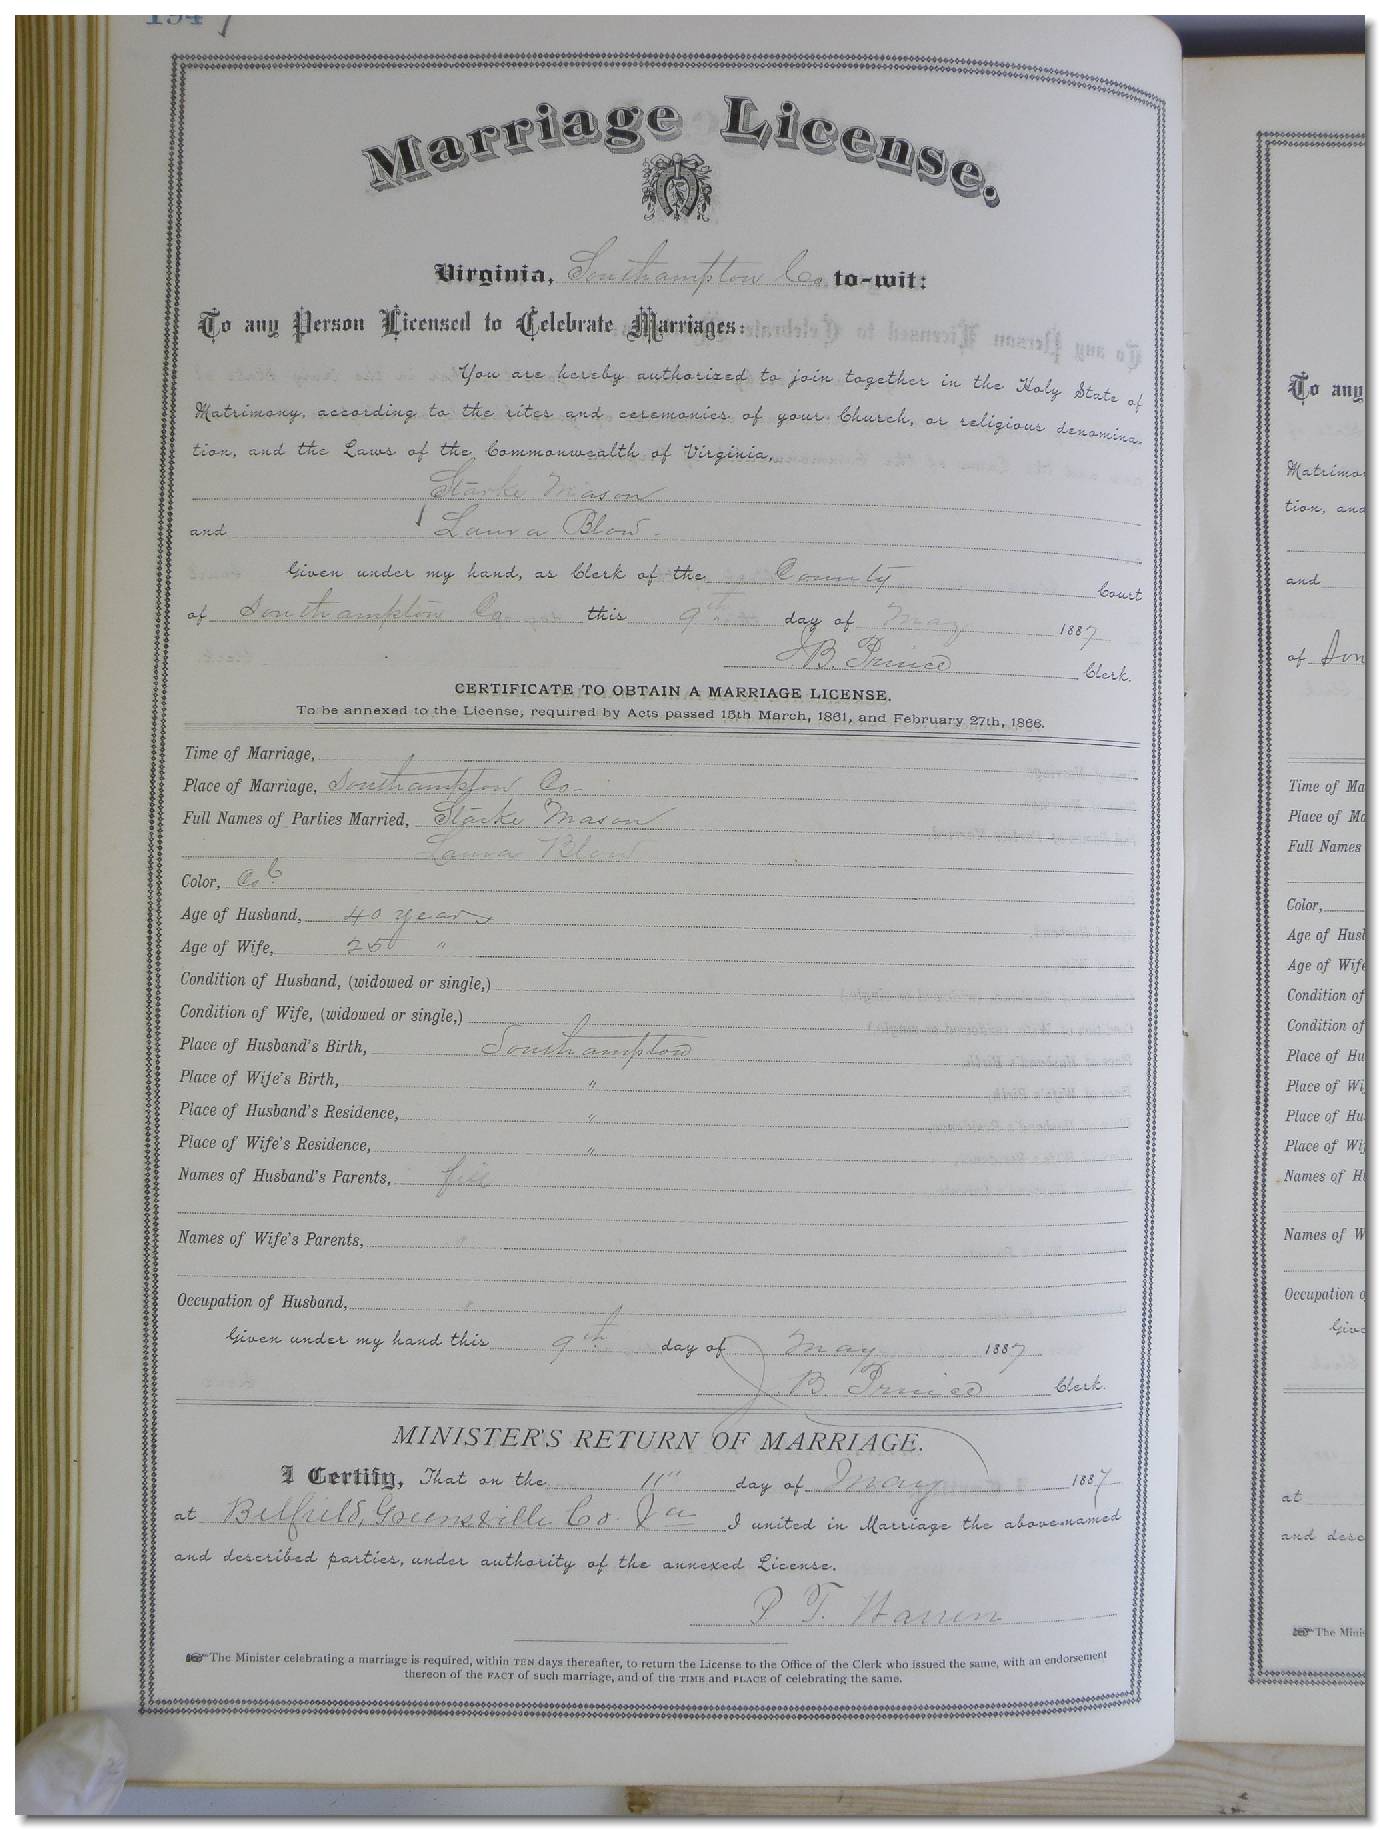 194
Marriage License.
Virginia, Southampton Co to-wit:
To any Person Licensed to Celebrate Marriages:
You are hereby authorized to join together in the Holy State of
Matrimony, according to the rites and ceremonies of your Church, or religious denomina-
tion, and the Laws of the Commonwealth of Virginia,
Starke Mason
and Laura Blow
Given under my hand, as Clerk of the County Court
of Southampton Co this 9th day of May 1887
J. B. Prince Clerk.
CERTIFICATE TO OBTAIN A MARRIAGE LICENSE.
To be annexed to the License, required by Acts passed 15th March, 1861, and February 27th, 1866.
Time of Marriage,
Place of Marriage, Southampton Co.
Full Names of Parties Married, Starke Mason
Laura Blow
Color, Col
Age of Husband, 40 years
Age of Wife, 25 "
Condition of Husband, (widowed or single,)
Condition of Wife, (widowed or single,)
Place of Husband's Birth, Southampton
Place of Wife's Birth, "
Place of Husband's Residence, "
Place of Wife's Residence, "
Names of Husband's Parents,
Names of Wife's Parents,
Occupation of Husband,
Given under my hand this 9th day of May 1887
J. B. Prince Clerk.
MINISTER'S RETURN OF MARRIAGE.
I Certify, That on the 11" day of May 1887
at Belfield, Greensville Co. Va I united in Marriage the above-named
and described parties, under authority of the annexed License.
P. T. Warren
The Minister celebrating a marriage is required, within TEN days thereafter, to return the License to the Office of the Clerk who issued the same, with an endorsement
thereon of the FACT of such marriage, and of the TIME and PLACE of celebrating the same.
To any
Matrimo
tion, and
and
of Sou
Time of Ma
Place of Ma
Full Names
Color,
Age of Husb
Age of Wife
Condition of
Condition of
Place of Hu
Place of Wi
Place of Hu
Place of Wi
Names of H
Names of W
Occupation o
Give
at
and desc
The Minis